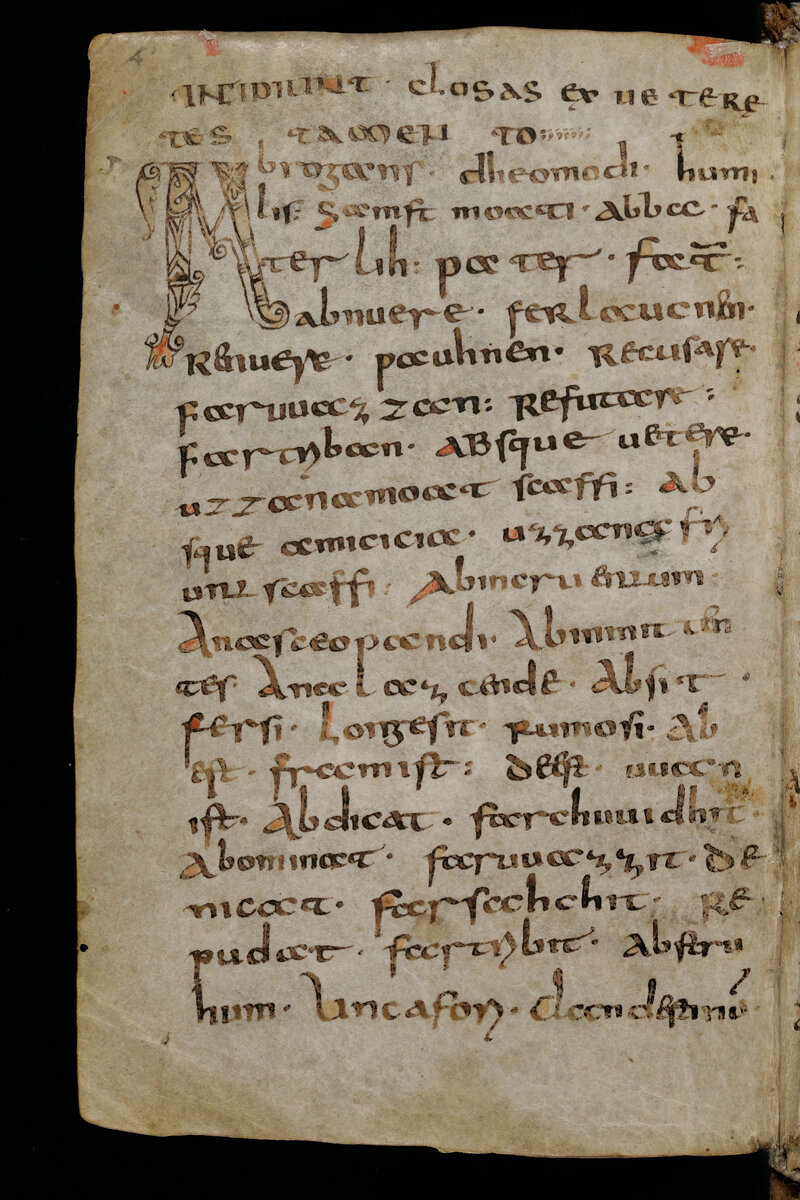 INCIPIUNT CLOSAS EX UETERE
TES TAMEN TO
Abrogans. dheomodi. humi
lis. samft moati. Abba. fa
ter lih: pater. fat̄:
abnuere. ferlaucnen.
Renuere. pauhnen. Recusare.
faruuazzan: Refutare:
fartriban. Absque uetere.
uzzana moat scaffi: Ab
sque amicicia. uzzana fri
unt scaffi. Abincruentum
Anasceopandi. Abminiten
tes Anaclazcende. Absit.
fersi. Longesit. rumosi. Ab
est. framist: Deest. uuan
ist. Abdicat. farchuuidhit.
Abominat. faruuazzit. De
nicat. farsahchit. Re
pudat. fartribit. Abstru
hum. clandestinū